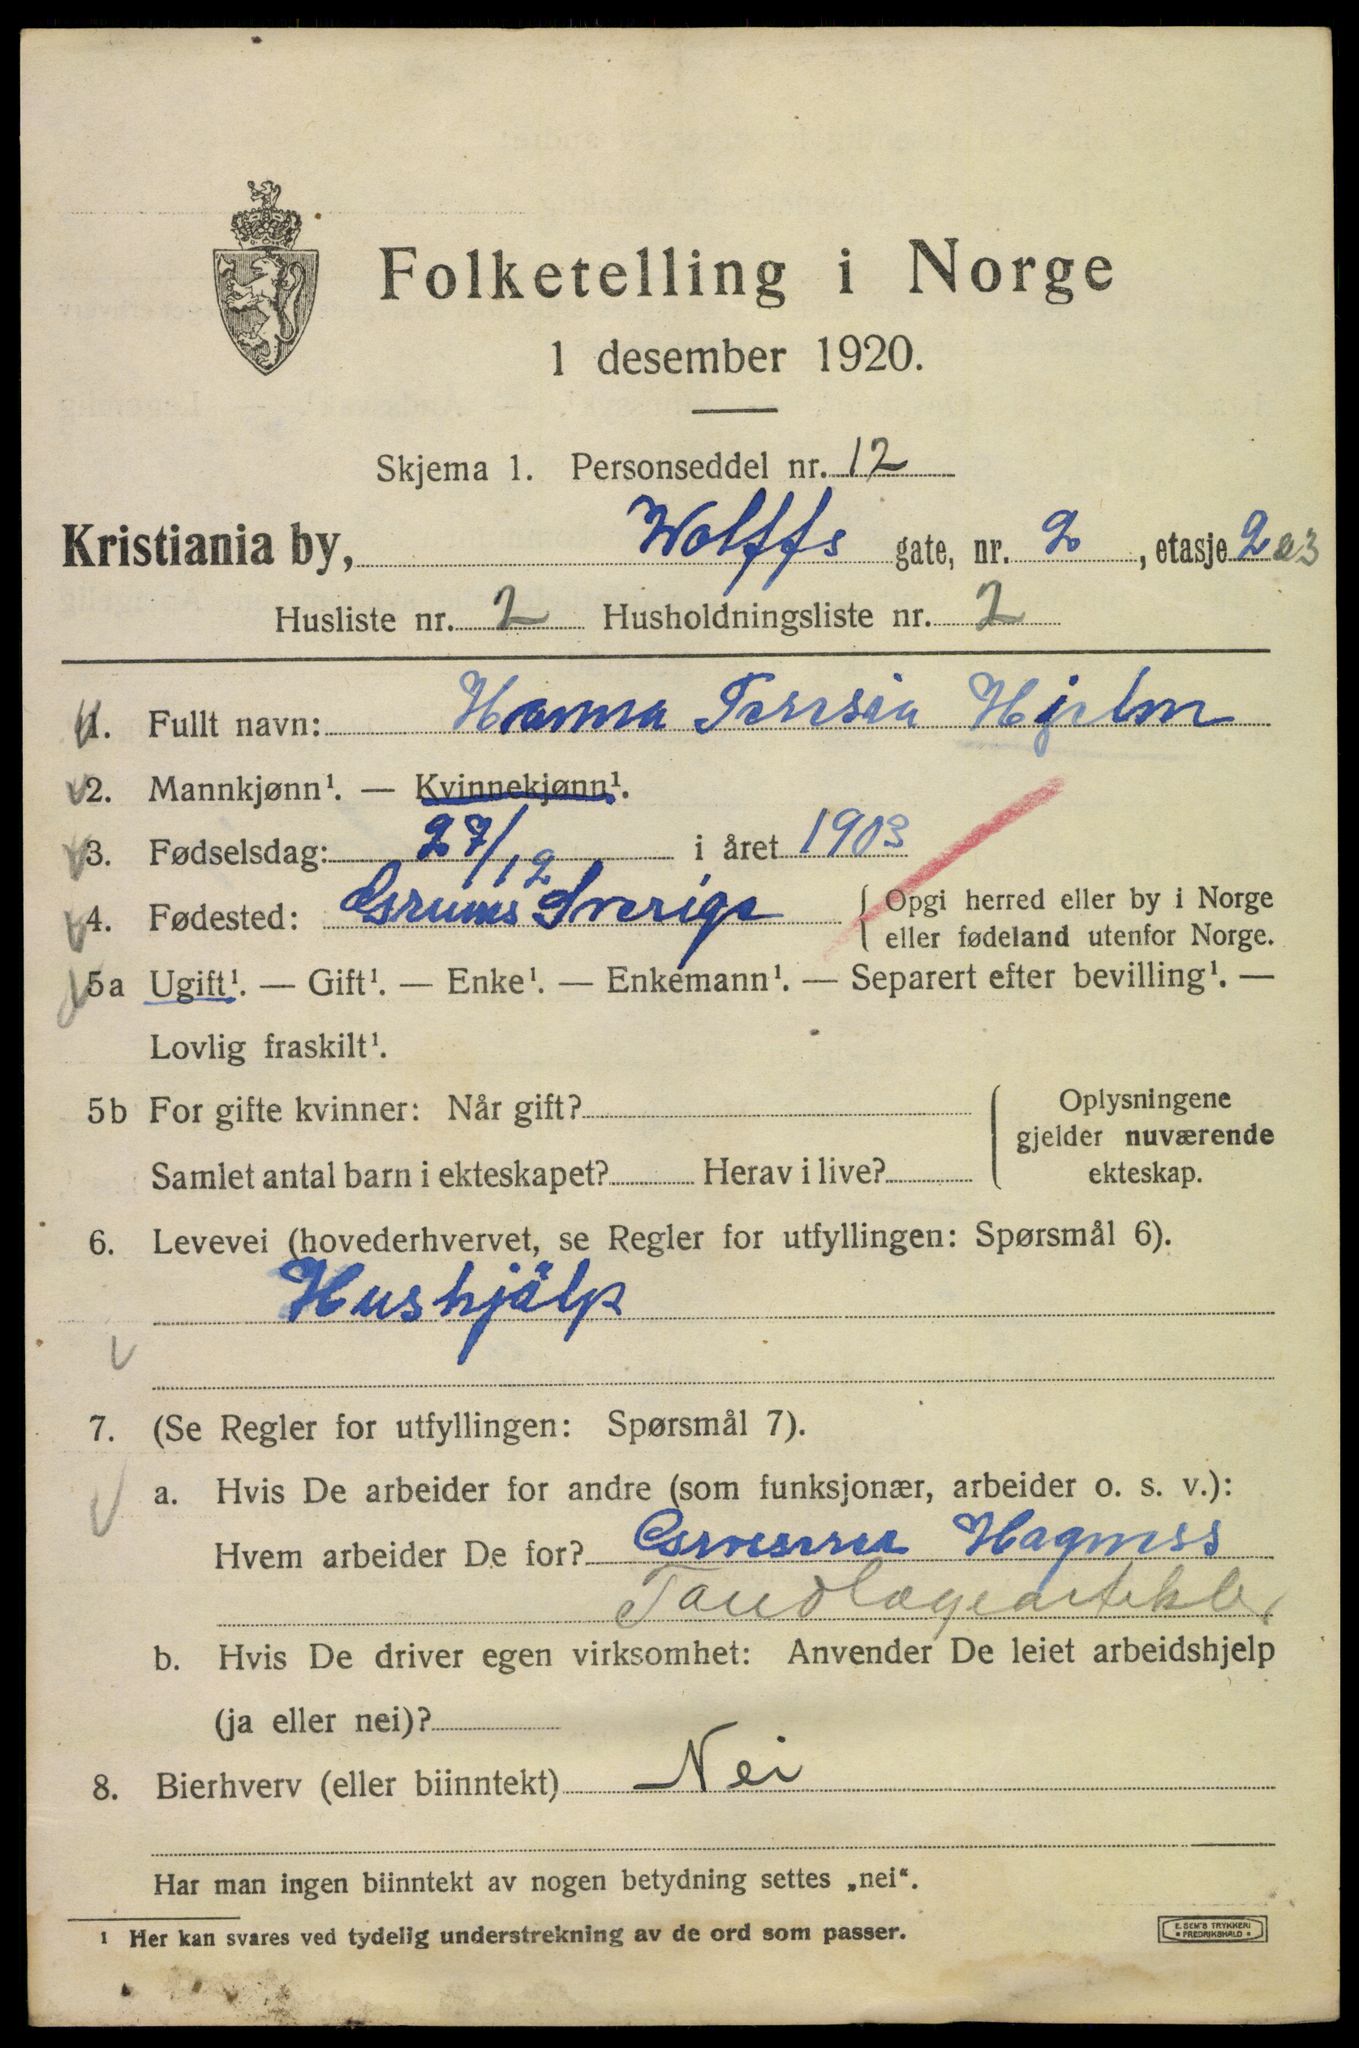 Folketelling i Norge
1 desember 1920.
Skjema 1. Personseddel nr. 12
Kristiania by, Wolffs gate, nr. 2, etasje 2 o 3
Husliste nr. 2 Husholdningsliste nr. 2
1. Fullt navn: Hanna Teresia Hjelm
2. Mannkjønn¹. — Kvinnekjønn¹.
3. Fødselsdag: 27/12 i året 1903
4. Fødested: Grums Sverige { Opgi herred eller by i Norge
eller fødeland utenfor Norge.
5a Ugift¹. — Gift¹. — Enke¹. — Enkemann¹. — Separert efter bevilling¹. —
Lovlig fraskilt¹.
5b For gifte kvinner: Når gift? { Oplysningene
gjelder nuværende
Samlet antal barn i ekteskapet? Herav i live? ekteskap.
6. Levevei (hovederhvervet, se Regler for utfyllingen: Spørsmål 6).
Hushjälp
7. (Se Regler for utfyllingen: Spørsmål 7).
a. Hvis De arbeider for andre (som funksjonær, arbeider o. s. v.):
Hvem arbeider De for? Hagness
Tandlægeartikler
b. Hvis De driver egen virksomhet: Anvender De leiet arbeidshjelp
(ja eller nei)?
8. Bierhverv (eller biinntekt) Nei
Har man ingen biinntekt av nogen betydning settes „nei“.
¹ Her kan svares ved tydelig understrekning av de ord som passer.
E. SEM'S TRYKKERI
• FREDRIKSHALD •